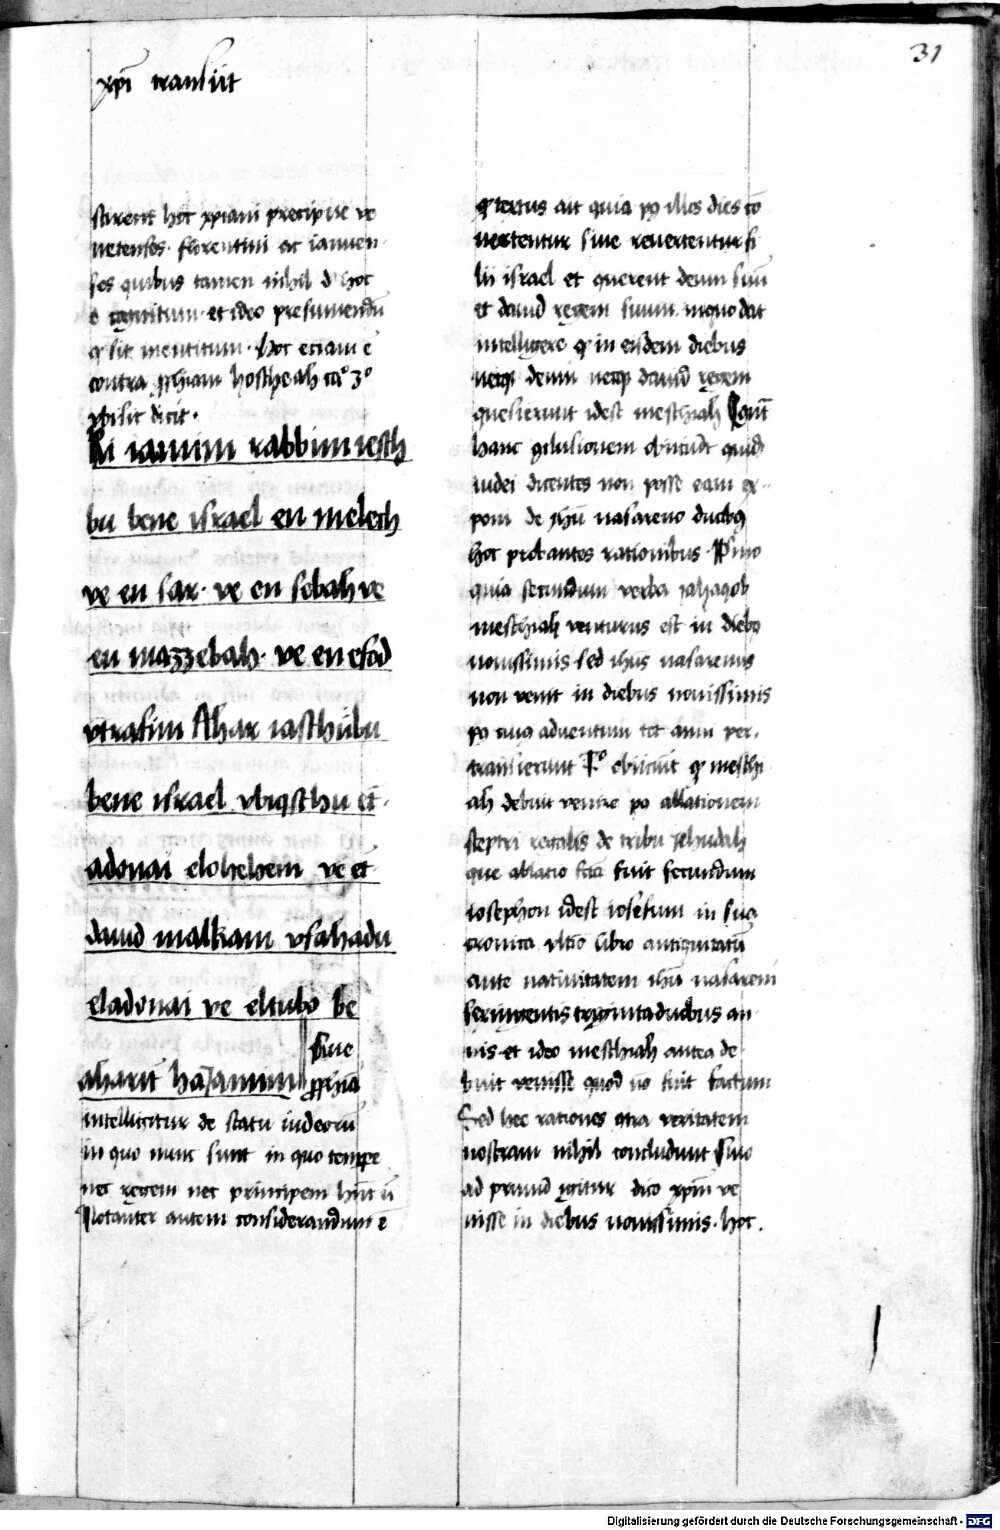 31
xp̄i transiit
scirent hoc xp̄iani precipue ve
netenses. florentini ac ianuen
ses quibus tamen nihil d' hoc
ē cognitum. et ideo presumendū
q sit mentitum. Hoc etiam ē
contra ꝓphiam hoscheah ca° 3°
vbi sic dicit.
Ki iamim rabbim iesch
bu bene israel en melech
ve en sar. ve en sebah ve
en mazzebah. ve en efod
vtrafim Ahar iasthubu
bene israel vbiqsthu et
adonai elohehem ve et
dauid malkam vfahadu
eladonai ve eltubo be
aharit haiamim
siue
ꝓphīa
intelligitur de statu iudeorū
in quo nunc sunt in quo tempore
nec regem nec principem hn̄t
Notanter autem considerandum ē
q textus ait quia po illos dies cō
uertentur siue reuertentur fi
lii israel et querent deum suū
et dauid regem suum. in quo dat
intelligere q in eisdem diebus
neque deum neque dauid regem
quesierunt idest meschiah
hanc ꝯclusionem obiciūt quid
iudei dicentes non posse eam ex
poni de ih̄u nasareno duobꝫ
hoc probantes rationibus. Pimo
quia secundum verba iahaqob
meschiah venturus est in diebꝫ
nouissimis sed ih̄us nasarenus
non venit in diebus nouissimis
po cuiꝰ aduentum tot anni per
transierunt. 2° obiciūt q meschi
ah debuit venire po ablationem
sceptri regalis de tribu iehudah
que ablatio fcā fuit secundum
iosephon idest iosefum in sua
cronica vltīo libro antiquitatū
ante natiuitatem ih̄u nasareni
triginta duobus an
nis. et ideo meschiah antea de
buit venisse quod nō fuit factum
Sed hec rationes ꝯtra veritatem
nostram nihil concludunt
ad primū igitur dico xp̄m ve
nisse in diebus nouissimis. hoc.
Digitalisierung gefördert durch die Deutsche Forschungsgemeinschaft - DFG